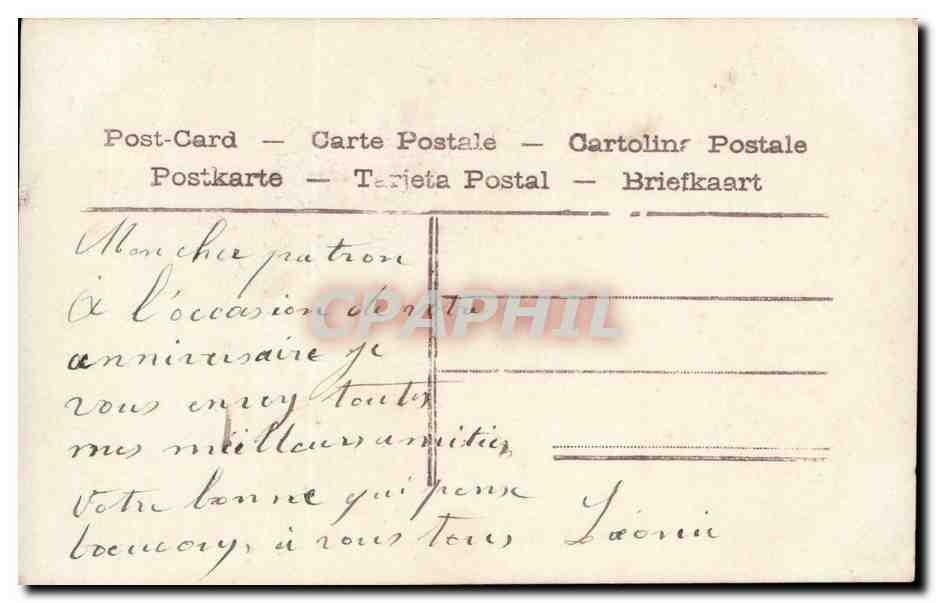 Post-Card — Carte Postale — Cartolina Postale
Postkarte — Tarjeta Postal — Briefkaart
Mon cher patron
à l'occasion de votre
anniversaire je
vous envoy toutes
mes meilleurs amitiés
Votre bonne qui pense
beaucoup, à vous tous Léonie
CPAPHIL